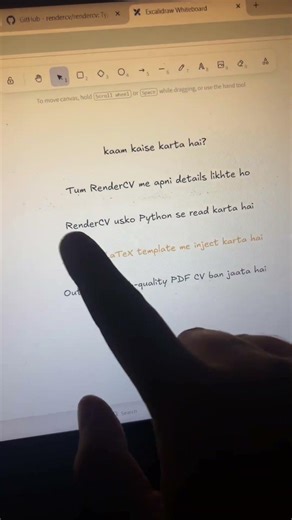 GitHub - rendercv/rendercv: Ty
Excalidraw Whiteboard
To move canvas, hold Scroll wheel or Space while dragging, or use the hand tool
kaam kaise karta hai?
Tum RenderCV me apni details likhte ho
RenderCV usko Python se read karta hai
aTeX template me inject karta hai
Out -quality PDF CV ban jaata hai
Search